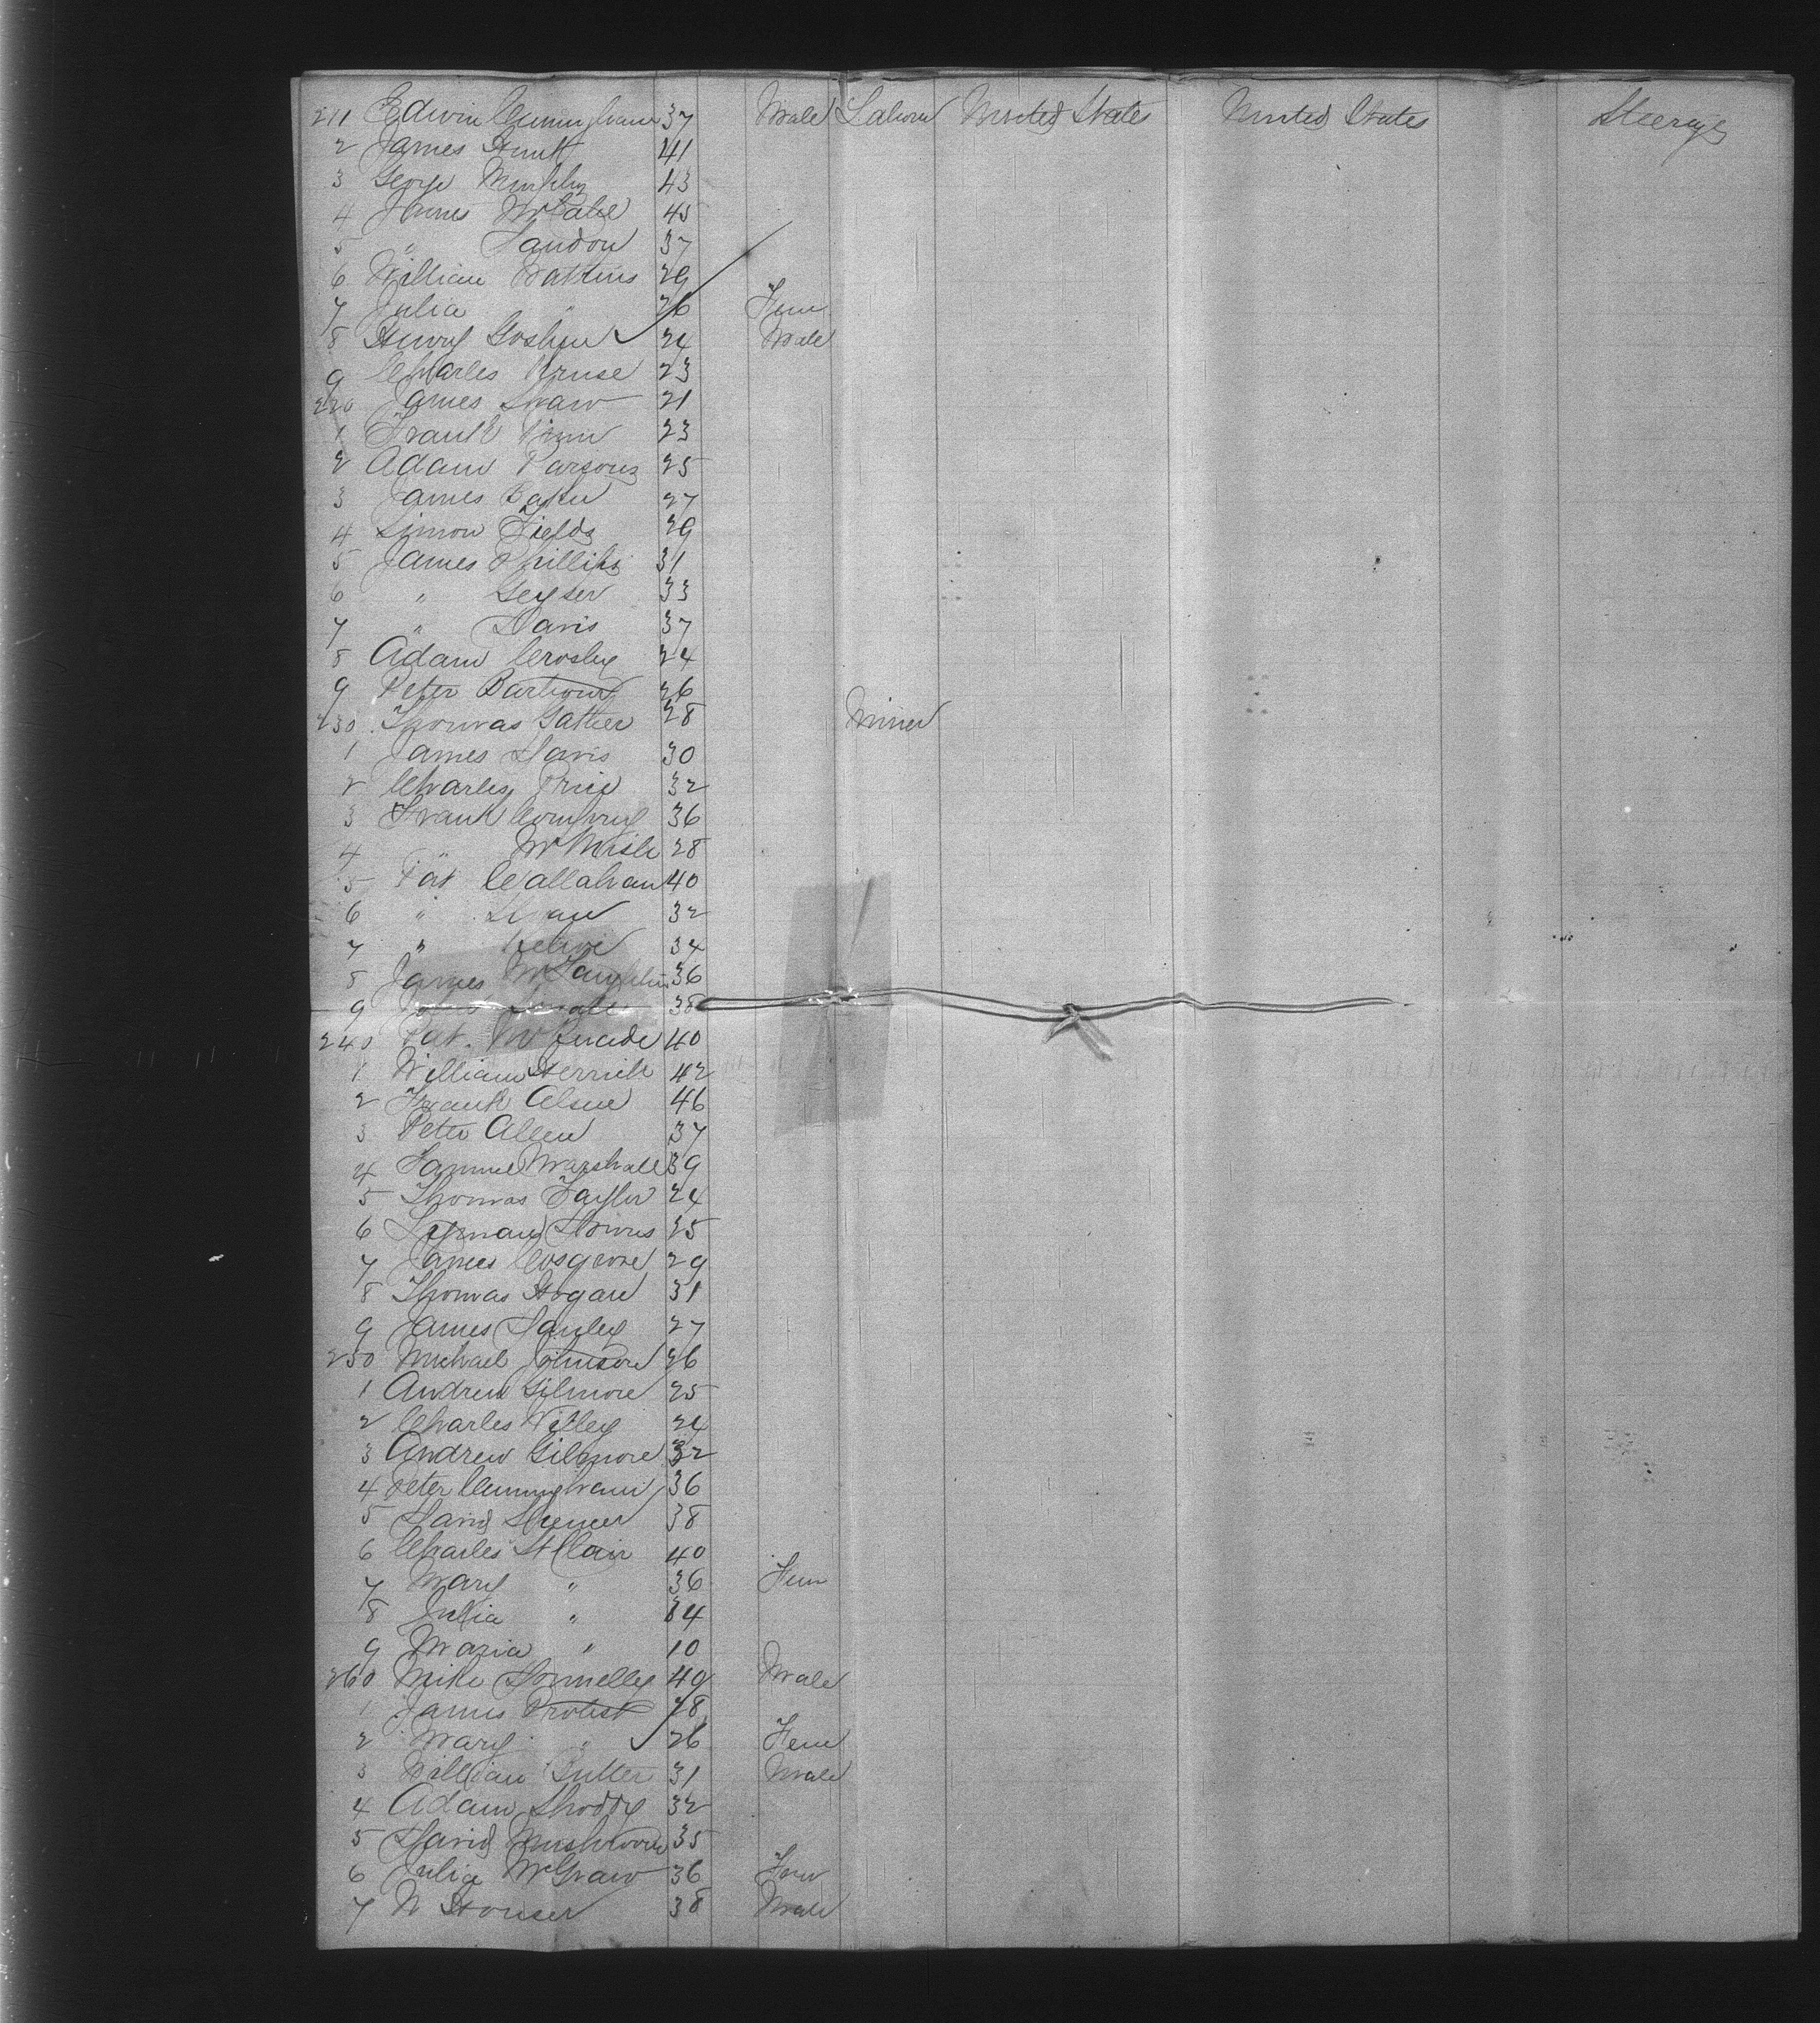 211 Edwin Cunningham 37 Male Labour United States United States Steerage
2 James Hunt 41
3 George Murphy 43
4 James McCabe 45
5 " Landon 37
6 William Watkins 29
7 Julia " 26 Fem
8 Henry Goshen 24 Male
9 Charles Kruse 23
220 James Shaw 21
1 Frank 23
2 Adam Parsons 25
3 James 27
4 Simon Fields 29
5 James Phillips 31
6 " Geyser 33
7 " Davis 37
8 Adam Crosby 24
9 Peter Barbour 26
230 Thomas Gather 28 Miner
1 James Davis 30
2 Charles Price 32
3 Frank 36
4 " 28
5 Pat Callahan 40
6 " 32
7 " 34
8 James McLaughlin 36
9 38
240 Pat. 40
1 William Herrick 42
2 Frank 46
3 Peter Allen 37
4 Samuel Marshall 39
5 Thomas Taylor 24
6 Lyman 25
7 James Cosgrove 29
8 Thomas Hogan 31
9 James Hanley 27
250 Michael Johnson 26
1 Andrew Gilmore 25
2 Charles Willey 24
3 Andrew Gilmore 32
4 Peter Cunningham 36
5 David Spencer 38
6 Charles St Clair 40
7 Mary " 36 Fem
8 Julia " 34
9 Maria " 10
260 Mike Donnelly 40 Male
1 James Protest 28
2 Mary " 26 Fem
3 William Butler 31 Male
4 Adam Shoddy 32
5 David Mushroom 35
6 Julia McGraw 36 Fem
7 W Houser 38 Male